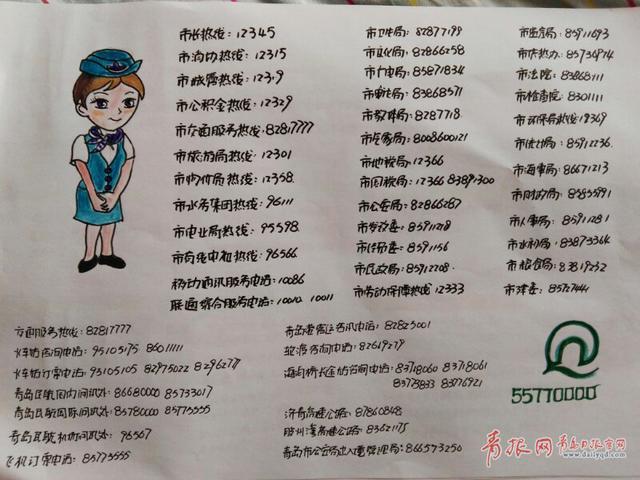 市长热线：12345
市消协热线：12315
市城管热线：12319
市公积金热线：12329
市交通服务热线：82817777
市旅游局热线：12301
市物价局热线：12358
市水务集团热线：96111
市电业局热线：95598
市有线电视热线：96566
移动通讯服务电话：10086
联通综合服务电话：10010 10011
市卫生局：82877199
市文化局：82866258
市广电局：85871834
市审计局：83868571
市教体局：8287718
市专家局：8008600121
市地税局：12366
市国税局：12366 83891300
市公安局：82866287
市发改委：85911218
市经信委：8591156
市民政局：85912208
市劳动保障热线：12333
市监察局：85911693
市法院：83868111
市检查院：8301111
市环保局热线：12369
市统计局：85912236
市海事局：86671213
市财政局：85855791
市人事局：85911281
市水利局：83873364
市粮食局：83819232
市建委：85727441
交通服务热线：82817777
火车站咨询电话：95105175 86011111
火车站订票电话：95105105 82975022 82962777
青岛民航国内问讯处：86680000 85733017
青岛民航国际问讯处：85780000 85775555
青岛民航机场问讯处：96567
飞机订票电话：85775555
青岛港客运问讯电话：82825001
轮渡咨询电话：82619279
83718060 83718061
83773833 83776921
济青高速公路：87860848
胶州湾高速公路：83621175
青岛市公安局出入境管理局：866573250
55770000
青报网 青岛日报官网
www.dailyqd.com